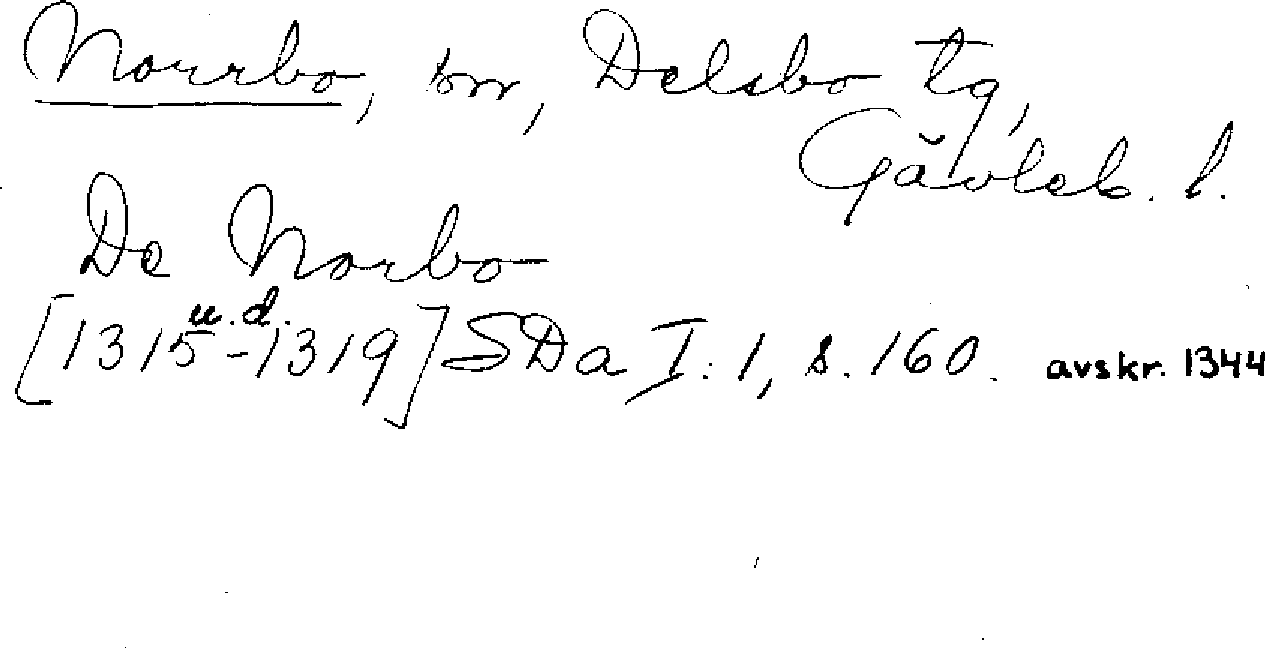 Norrbo, bm, Delsbo tg,
Gävleb. l.
De Norbo
u.d.
[1315-1319] SDa I:1, s. 160. avskr. 1344